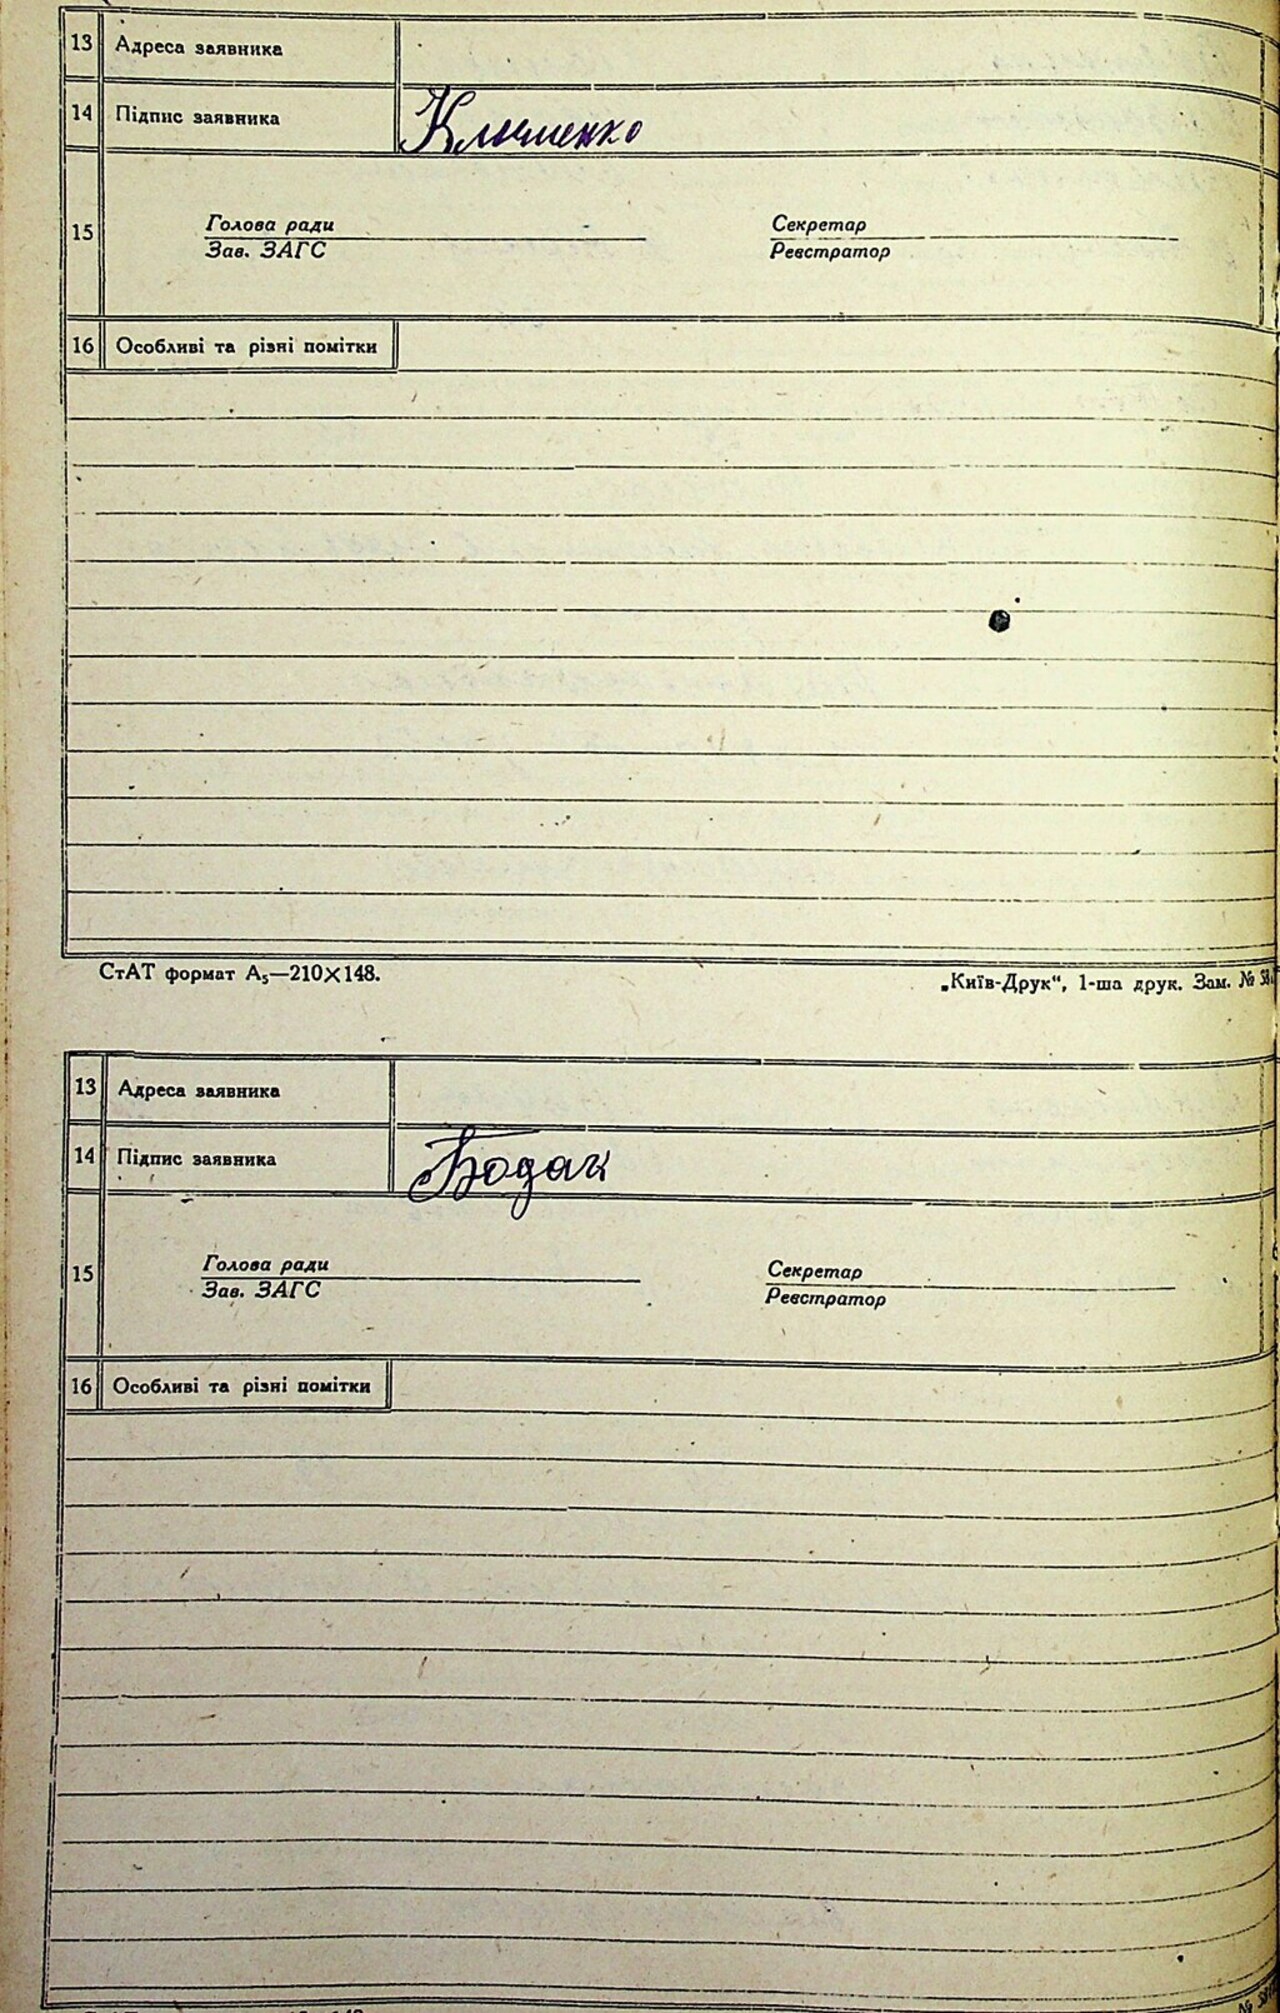 13 Адреса заявника
14 Підпис заявника Клименко
15 Голова ради Секретар
Зав. ЗАГС Реєстратор
16 Особливі та різні помітки
СтАТ формат А₅—210×148. „Київ-Друк“, 1-ша друк. Зам. №
13 Адреса заявника
14 Підпис заявника Бодак
15 Голова ради Секретар
Зав. ЗАГС Реєстратор
16 Особливі та різні помітки